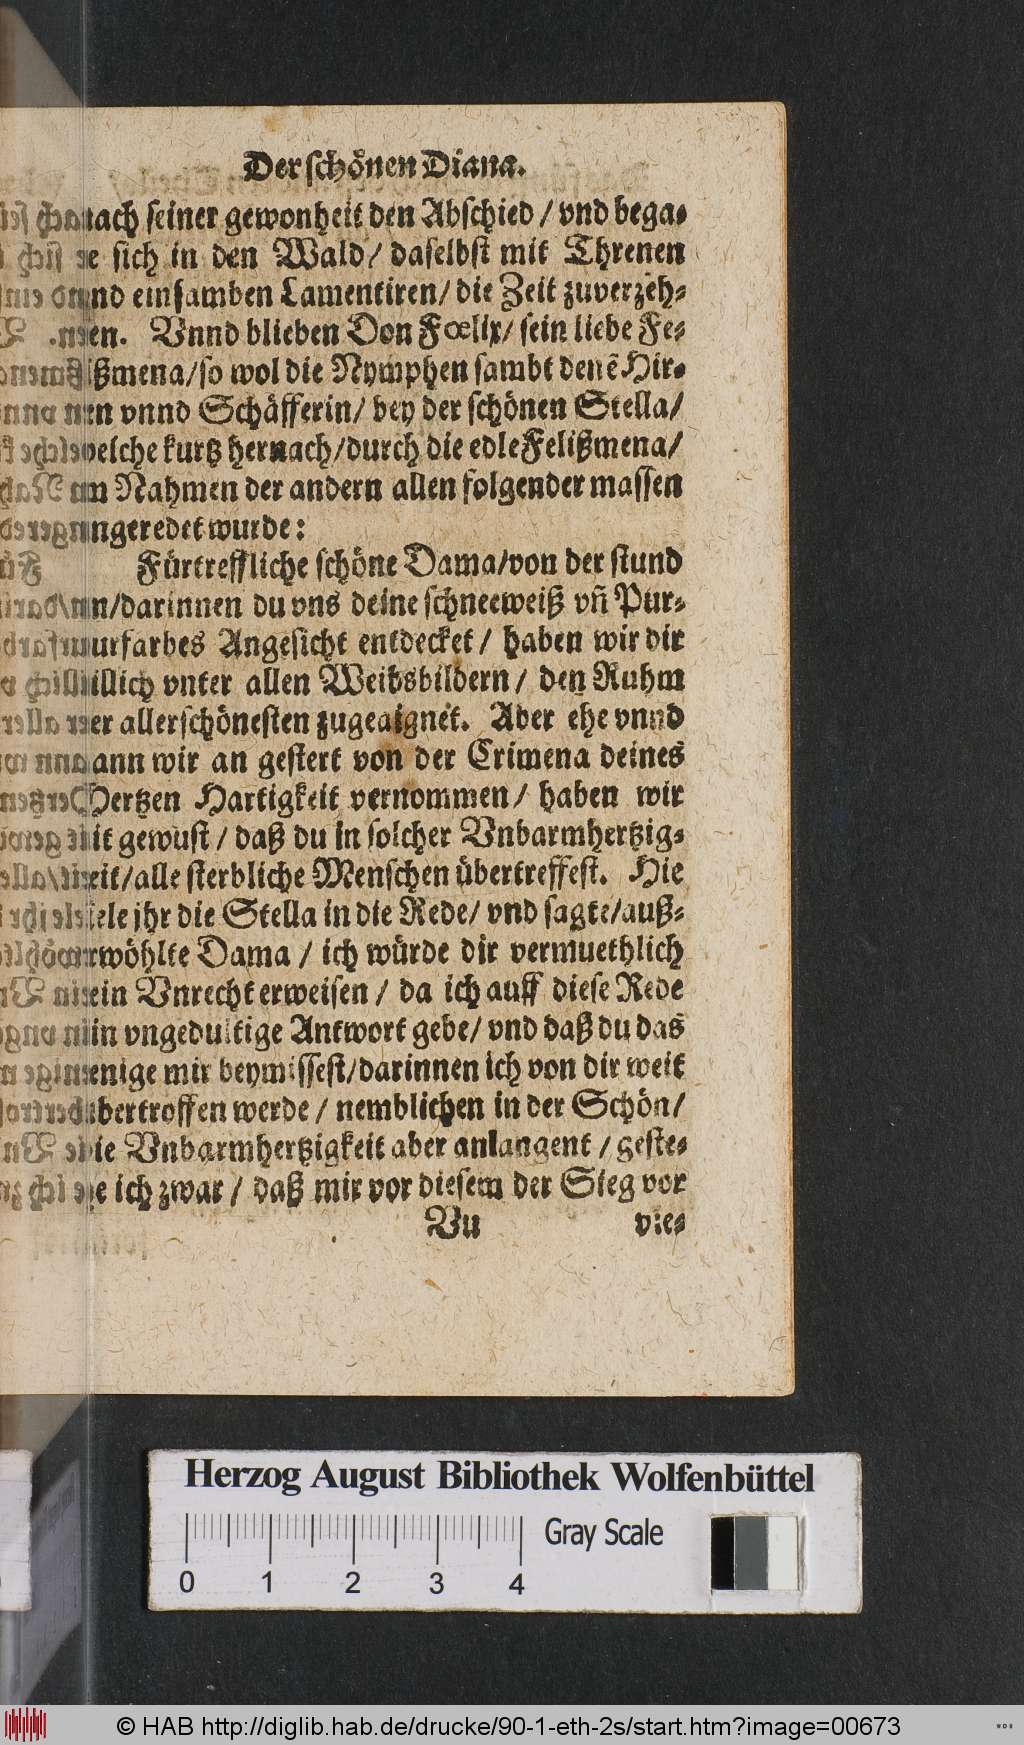 Der schönen Diana.
nach seiner gewonheit den Abschied / vnd bega-
e sich in den Wald / daselbst mit Threnen
nd einsamben Lamentiren / die Zeit zuverzeh-
en. Vnnd blieben Don Fœlix / sein liebe Fe-
ißmena / so wol die Nymphen sambt denẽ Hir-
en vnnd Schäfferin / bey der schönen Stella /
welche kurtz hernach / durch die edle Felißmena /
m Nahmen der andern allen folgender massen
ngeredet wurde:
Fürtreffliche schöne Dama / von der stund
n / darinnen du vns deine schneeweiß vñ Pur-
urfarbes Angesicht entdecket / haben wir dir
illich vnter allen Weibsbildern / den Ruhm
er allerschönesten zugeaignet. Aber ehe vnnd
ann wir an gestert von der Crimena deines
Hertzen Hartigkeit vernommen / haben wir
it gewust / daß du in solcher Vnbarmhertzig-
eit / alle sterbliche Menschen übertreffest. Hie
iele jhr die Stella in die Rede / vnd sagte / auß-
rwöhlte Dama / ich würde dir vermuethlich
ein Vnrecht erweisen / da ich auff diese Rede
in vngedultige Antwort gebe / vnd daß du das
enige mir beymissest / darinnen ich von dir weit
bertroffen werde / nemblichen in der Schön /
ie Vnbarmhertzigkeit aber anlangent / geste-
e ich zwar / daß mir vor diesem der Sieg vor
Vu vie-
Herzog August Bibliothek Wolfenbüttel
Gray Scale
0 1 2 3 4
© HAB http://diglib.hab.de/drucke/90-1-eth-2s/start.htm?image=00673